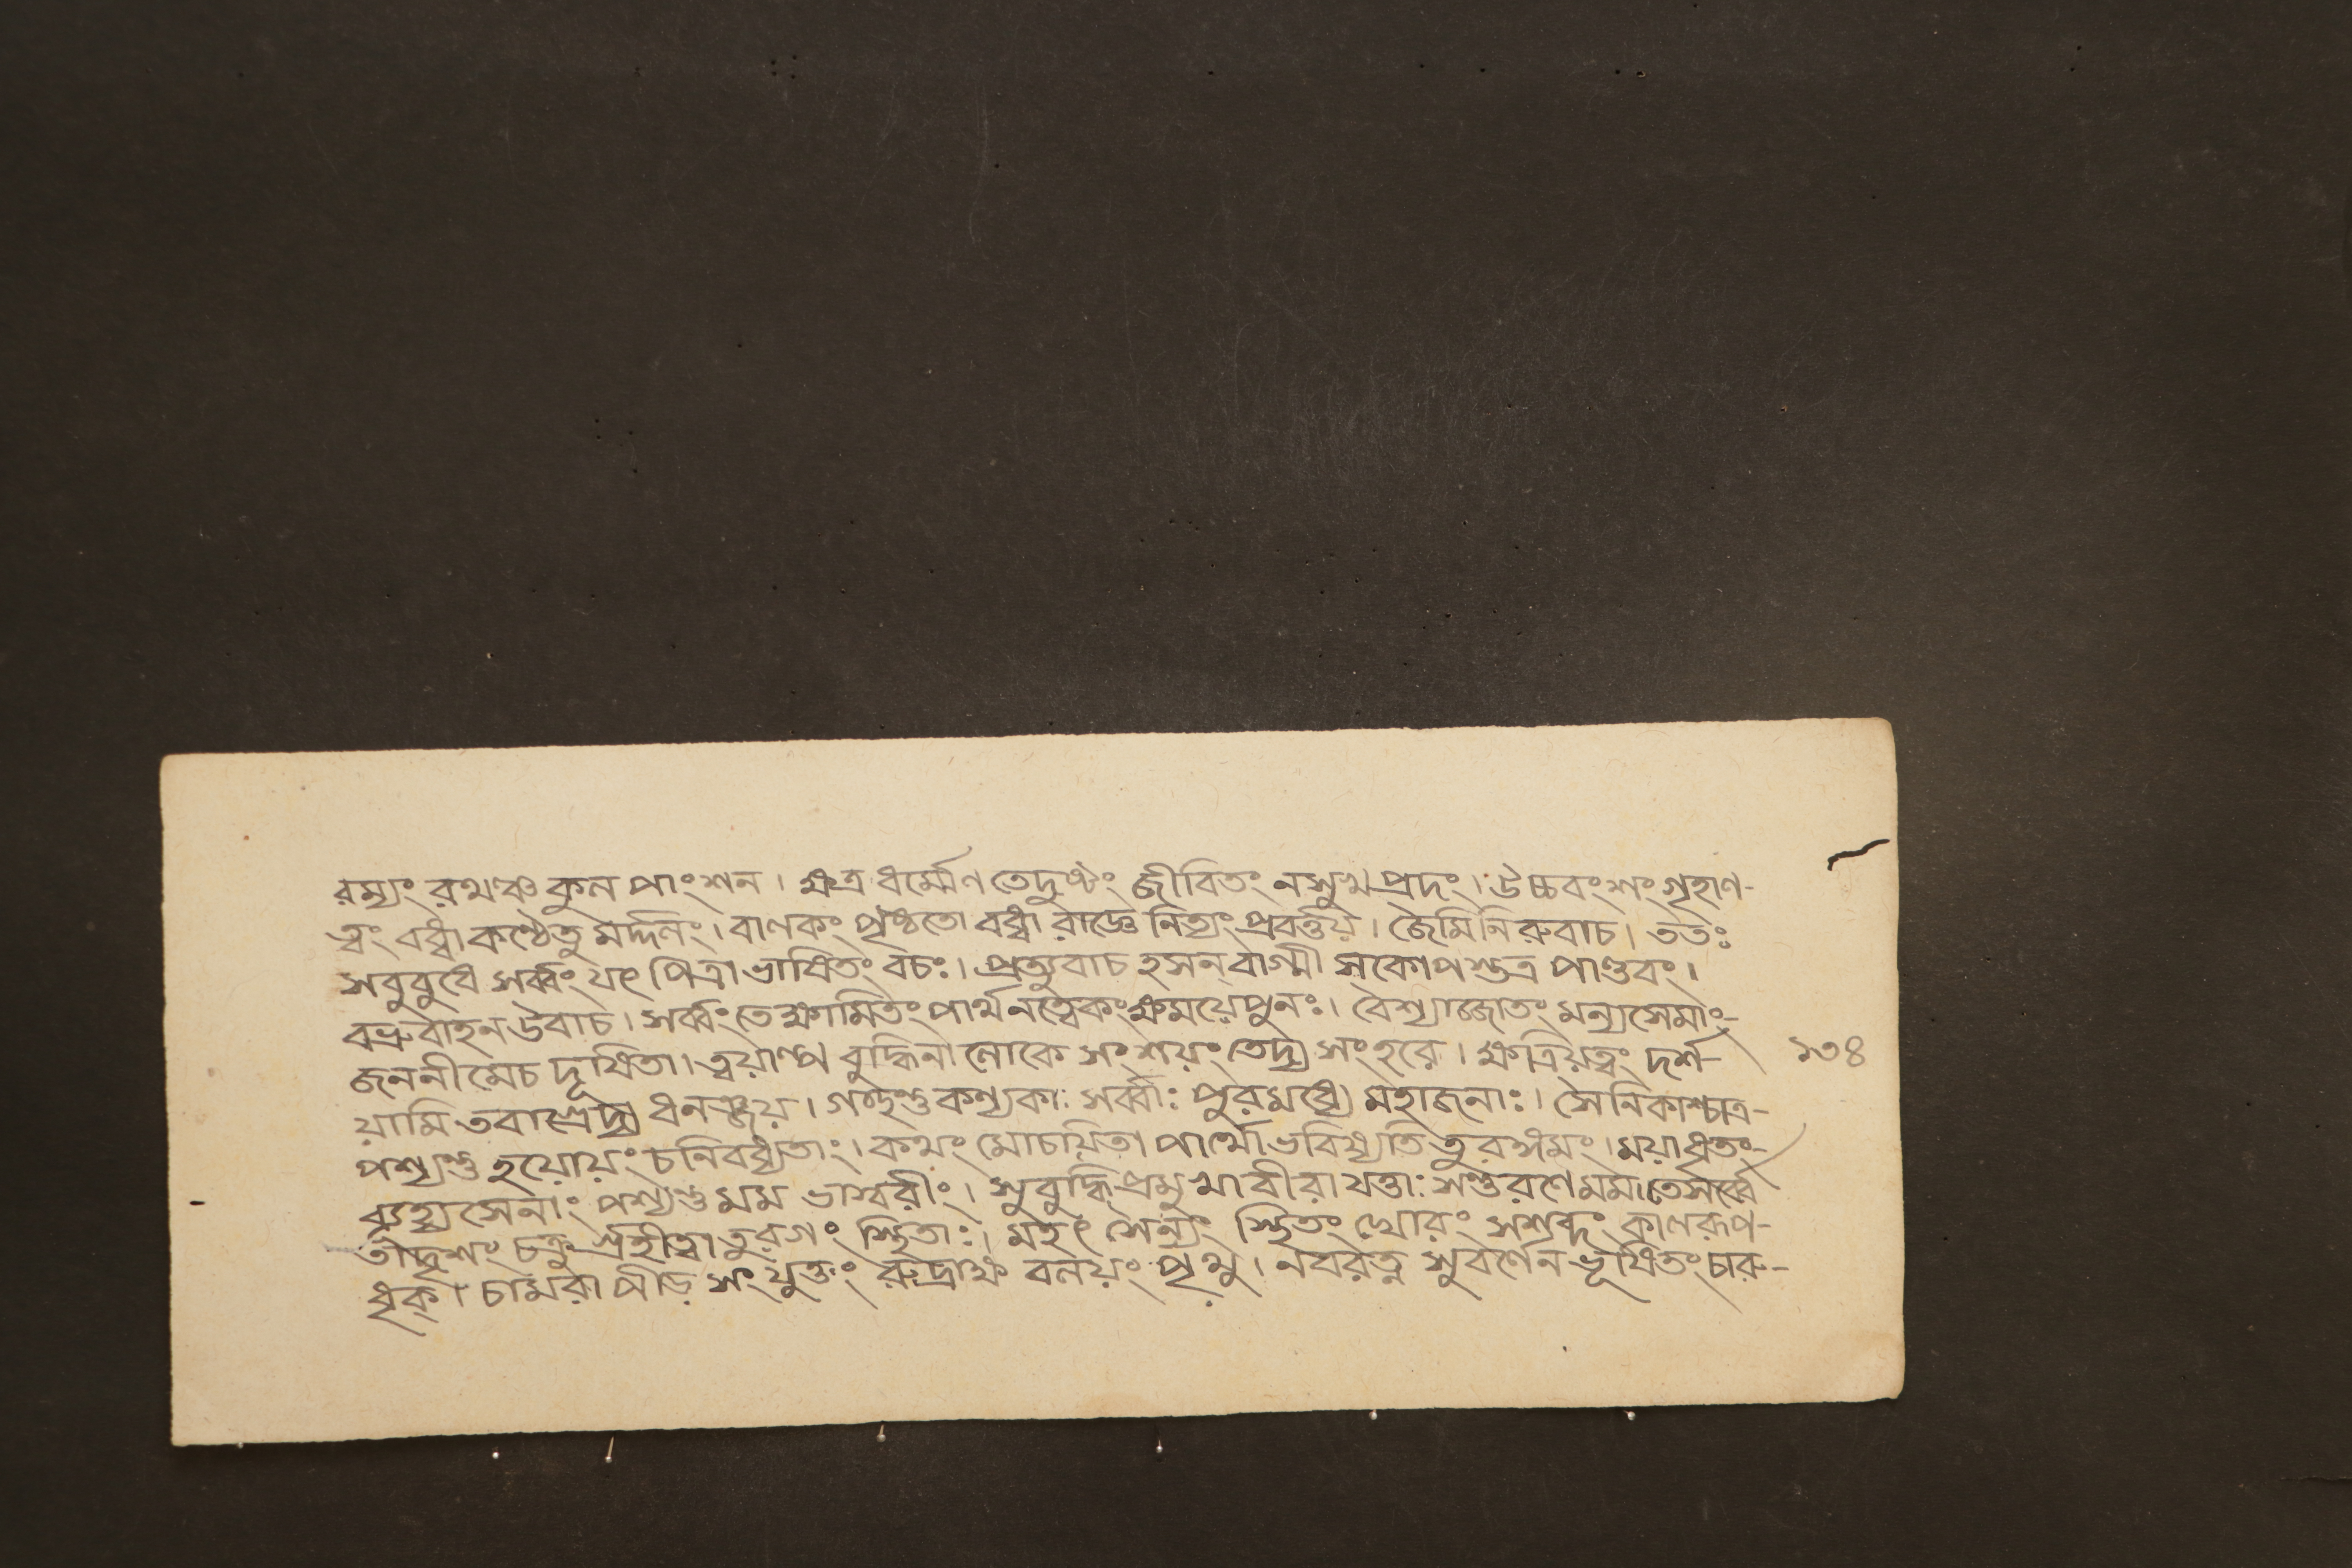 রম্যং রথঞ্চ কুল পাংশন। ক্ষত্র ধর্ম্মেণ তেদুষ্টং জীবিতং নসুখপ্রদং। উচ্চবংশং গৃহাণ-
ত্বং বধ্বা কণ্ঠেতু মর্দ্দলং। বাণকং পৃষ্ঠতো বধ্বা রাজ্ঞে নিত্যং প্রবর্ত্তয়। জৈমিনিরুবাচ। ততঃ
সবুবুধে সর্ব্বং যৎ পিত্রা ভাষিতং বচঃ। প্রত্যুবাচ হসন্ বাগ্মী সকোপস্তত্র পাণ্ডবং।
বভ্রুবাহন উবাচ। সর্ব্বং তেক্ষামিতং পার্থ নত্বেকং ক্ষময়ে পুনঃ। বৈশ্যাজ্জাতং মন্যসেমাং-
জননী মেচ দূষিতা। ত্বয়াল্প বুদ্ধিনা লোকে সংশয়ং তেদ্য সংহরে। ক্ষত্রিয়ত্বং দর্শ-
১৩৪
য়ামি তবাগ্রেদ্য ধনঞ্জয়। গৃহ্ণন্তু কন্যকাঃ সর্ব্বাঃ পুরমধ্যে মহাজনাঃ। সৈনিকাশ্চাত্র-
পশ্যন্তু হয়োয়ং চনিবধ্যতাং। কথং মোচয়িতা পার্থো ভবিষ্যতি তুরঙ্গমং। ময়া ধৃতং-
ব্যূহ্যসেনাং পশ্যন্তু মম ভাস্বরীং। সুবুদ্ধি প্রমুখা বীরা যত্তাঃ সন্তু রণে মম। তেসর্ব্বে
তাদৃশং চক্রুর্গৃহীত্বা তুরগং স্থিতাঃ। মহৎ সৈন্যং স্থিতং ঘোরং সশব্দং কালরূপ-
ধৃক্। চামরাপীড় সংযুক্তং রুদ্রাক্ষ বলয়ং পৃথু। নবরত্ন সুবর্ণেন ভূষিতং চারু-